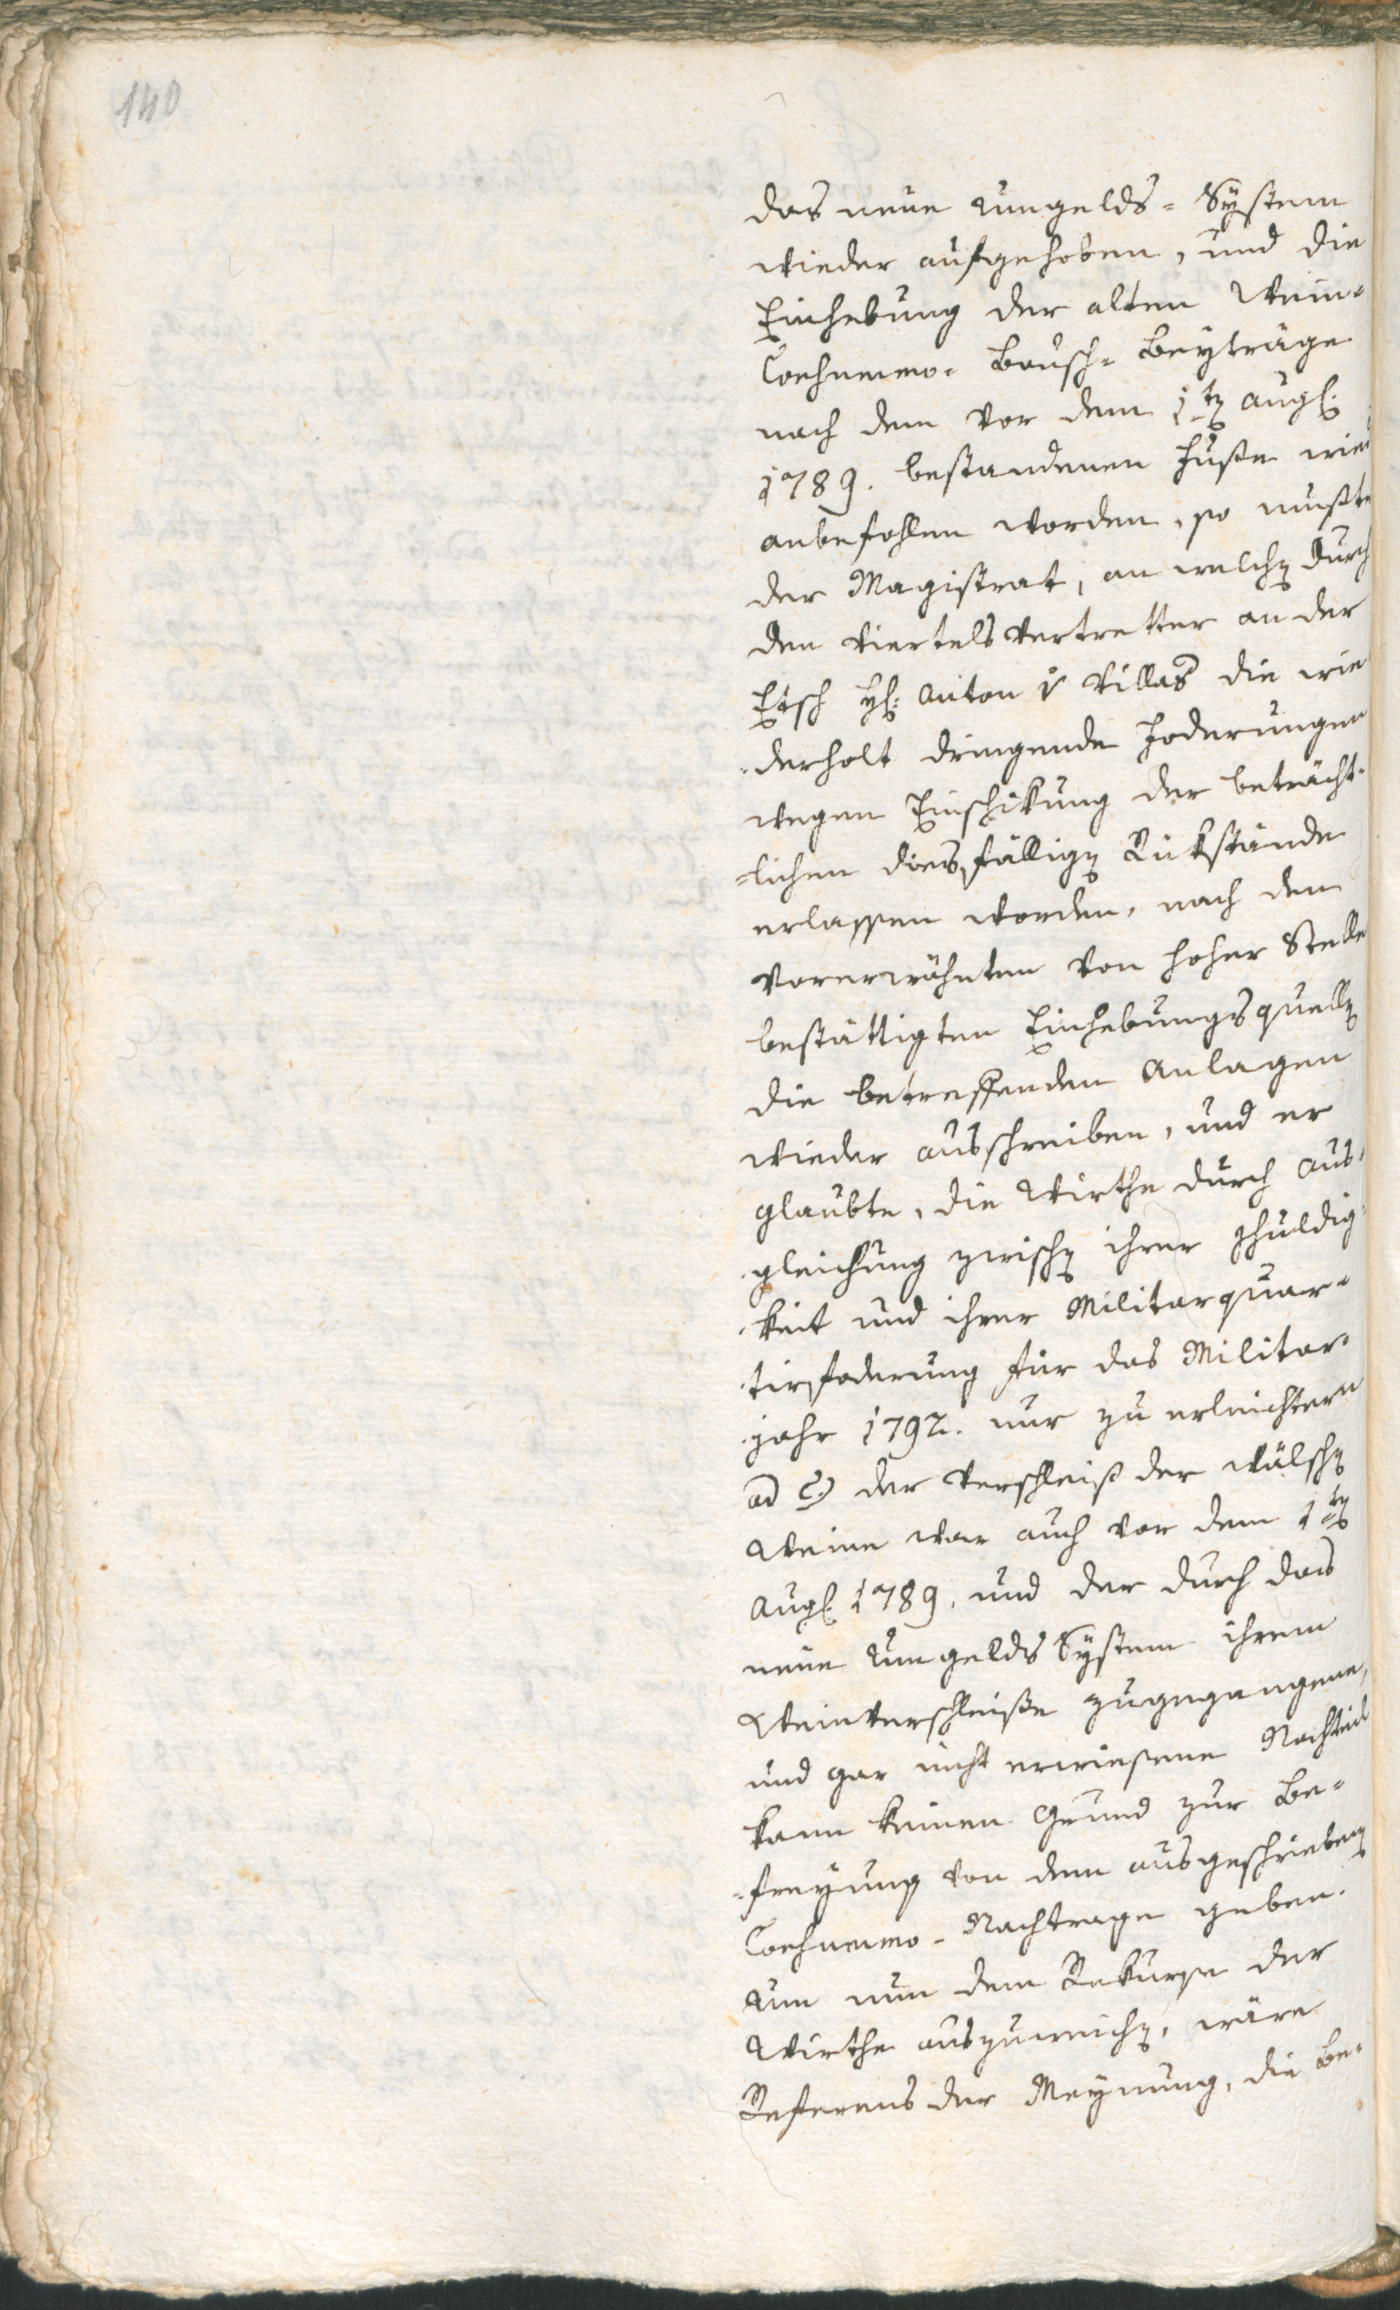 140
das neue Umgelds-System
wieder aufgehoben, und die
Einhebung der alten Wein-
Consummo-Bausch-Beyträge
nach dem vor dem 1ten Aug.
1789. bestandenen Fuße wied
anbefohlen worden, so mußte
der Magistrat, an welchen durch
den Viertelsvertretter an der
Etsch H: Anton v Villas die wie
-derholt dringende Foderungen
wegen Einschikung der beträcht-
-lichen diesfälligen Rükstände
erlassen worden, nach dem
vorerwähnten von hoher Stelle
bestättigten Einhebungsquellen
die betreffenden Anlagen
wieder ausschreiben, und er
glaubte, die Wirthe durch Aus-
-gleichung zwischen ihrer Schuldig
-keit und ihrer Militarquar-
-tirsfoderung für das Militar-
-jahr 1792. nur zu erleichtern
ad C.) der Verschleiß der wälschen
Weine war auch vor dem 1ten
Aug. 1789, und der durch das
neue Umgelds System ihrem
Weinverschleiße zugegangene,
und gar nicht erwiesene Nachteil
kann keinen Grund zur Be-
-freyung von dem ausgeschriebenen
Consummo-Nachtrage geben.
Um nun dem Rekurse der
Wirthe auszuweichen, wäre
Referens der Meynung, die Be-